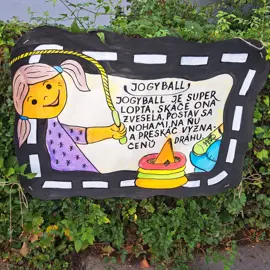 JOGYBALL
JOGYBALL JE SUPER
LOPTA, SKÁČE ONA
ZVESELA, POSTAV SA
NOHAMI NA ŇU
A PRESKÁČ VYZNA-
ČENÚ DRÁHU.